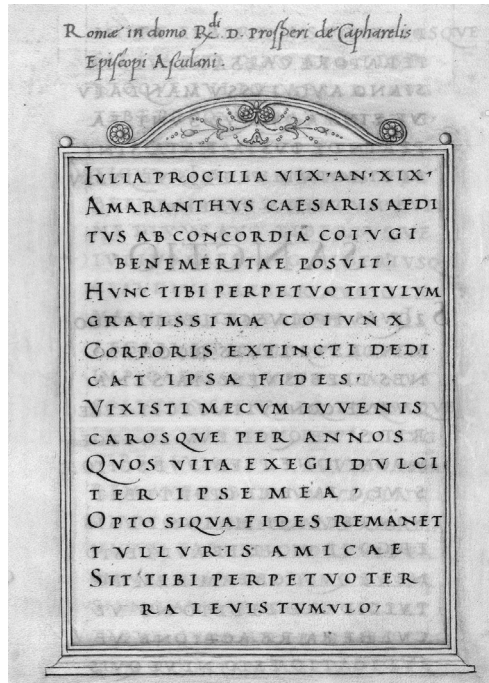 Romæ in domo R.di D. Prosperi de Capharelis
Episcopi Asculani.
IVLIA PROCILLA VIX·AN·XIX·
AMARANTHVS CAESARIS AEDI
TVS AB CONCORDIA COIVGI
BENEMERITAE POSVIT·
HVNC TIBI PERPETVO TITVLVM
GRATISSIMA COIVNX
CORPORIS EXTINCTI DEDI
CAT IPSA FIDES·
VIXISTI MECVM IVVENIS
CAROSQVE PER ANNOS
QVOS VITA EXEGI DVLCI
TER IPSE MEA,
OPTO SIQVA FIDES REMANET
TVLLVRIS AMICAE
SIT TIBI PERPETVO TER
RA LEVIS TVMVLO,